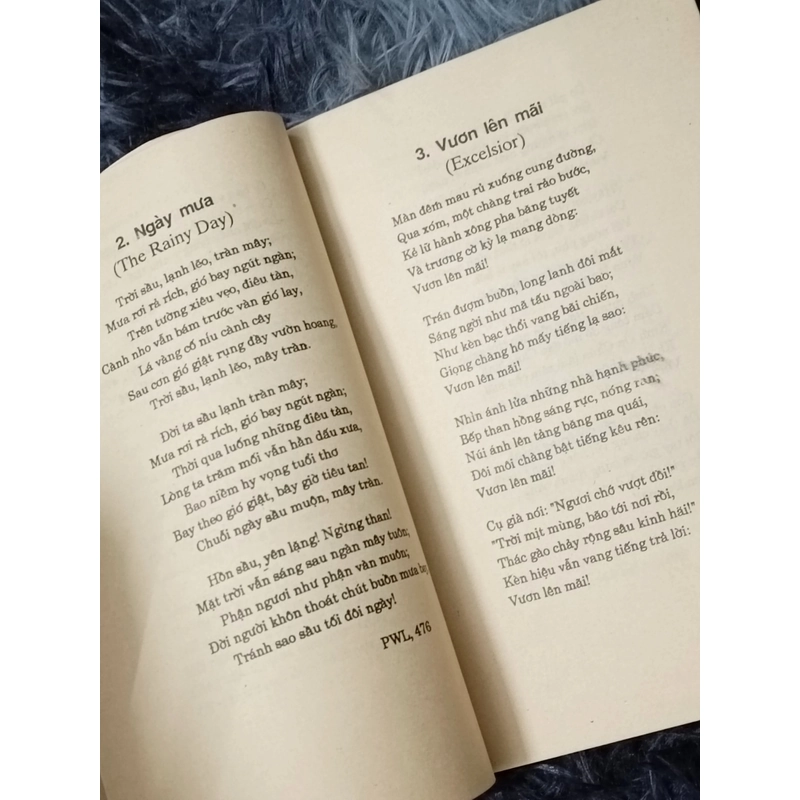 2. Ngày mưa
(The Rainy Day)
Trời sầu, lạnh lẽo, tràn mây;
Mưa rơi rả rích, gió bay ngút ngàn;
Trên tường xiêu vẹo, điêu tàn,
Cành nho vẫn bám trước vàn gió lay,
Lá vàng cố níu cành cây
Sau cơn gió giật rụng đầy vườn hoang,
Trời sầu, lạnh lẽo, mây tràn.
Dời ta sầu lạnh tràn mây;
Mưa rơi rả rích, gió bay ngút ngàn;
Thời qua luống những điêu tàn,
Lòng ta trăm mối vẫn hằn dấu xưa,
Bao niềm hy vọng tuổi thơ
Bay theo gió giật, bây giờ tiêu tan!
Chuỗi ngày sầu muộn, mây tràn.
Hồn sầu, yên lặng! Ngừng than!
Mặt trời vẫn sáng sau ngàn mây tuôn;
Phận ngươi như phận vàn muôn;
Dời người khôn thoát chút buồn mưa bay
Tránh sao sầu tối đôi ngày!
PWL, 476
3. Vươn lên mãi
(Excelsior)
Màn đêm mau rủ xuống cung đường,
Qua xóm, một chàng trai rảo bước,
Kẻ lữ hành xông pha băng tuyết
Và trương cờ kỳ lạ mang dòng:
Vươn lên mãi!
Trán đượm buồn, long lanh đôi mắt
Sáng ngời như mã tấu ngoài bao;
Như kèn bạc thổi vang bãi chiến,
Giọng chàng hô mấy tiếng lạ sao:
Vươn lên mãi!
Nhìn ánh lửa những nhà hạnh phúc,
Bếp than hồng sáng rực, nóng ran;
Núi ánh lên tảng băng ma quái,
Đôi môi chàng bật tiếng kêu rên:
Vươn lên mãi!
Cụ già nói: "Ngươi chớ vượt đồi!"
"Trời mịt mùng, bão tới nơi rồi,
Thác gào chảy rộng sâu kinh hãi!"
Kèn hiệu vẫn vang tiếng trả lời:
Vươn lên mãi!